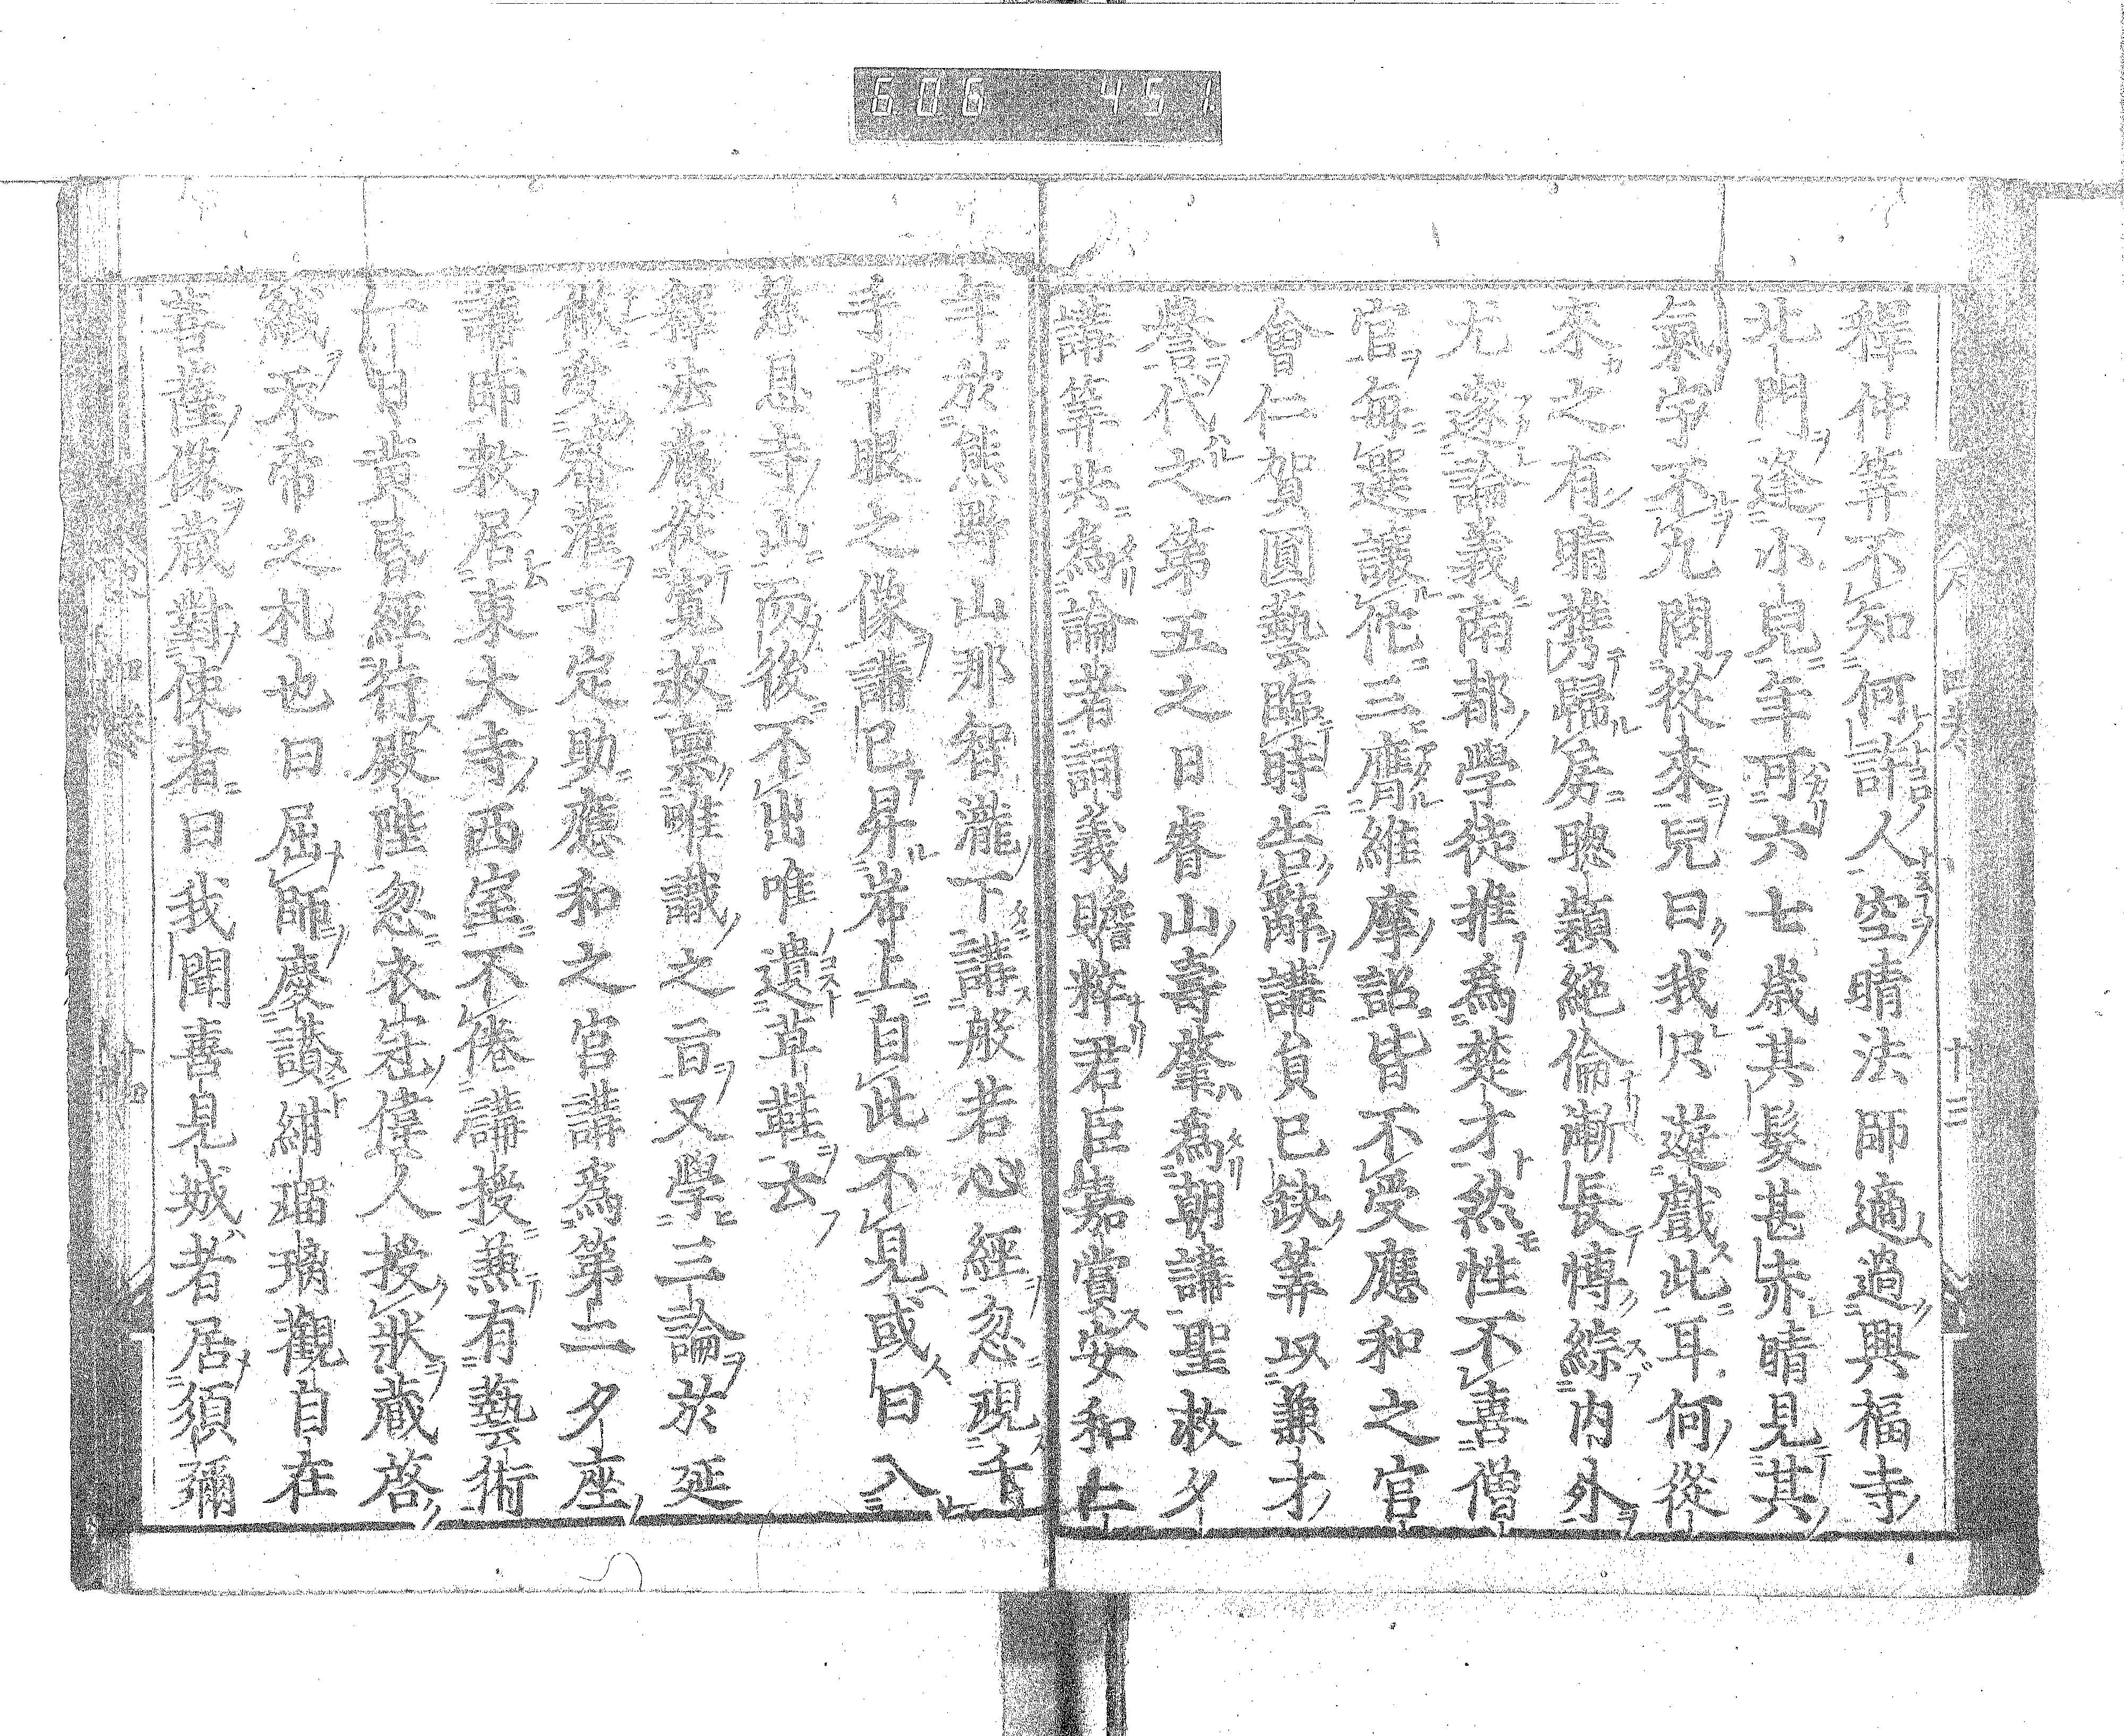 606 451
釋仲筭不知何許人空晴法師適過興福寺
北門逢小兒年可六七歲其髮甚赤晴見其
氣宇不凡問從來兒曰我只遊戲此耳何從
來之有晴携歸房聰穎絕倫漸長博綜内外
尤邃論義南都學徒推爲英才然性不喜僧
官每選讓佗三膺維摩詔皆不受應和之官
會仁賀圓藝臨時告辭講員已缺筭以兼才
譽代之第五之日睿山壽肇爲朝講聖救夕
講筭共爲論者詞義贍粹君臣嘉賞安和二
年於熊野山那智瀧下講般若心經忽現千
手千眼之像講已昇岸上自此不見或曰入
慈恩寺山而後不出唯遺草鞋云
釋法藏從寬救稟唯識之旨又學三論於延
敒受密灌于定助應和之官講爲第二夕座
講師救居東大寺西室不倦講授兼有藝術
一日黄昏經行殿陛忽衣冠偉人授狀藏啓
緘天帝之札也曰屈師慶讃紺瑠璃觀自在
菩薩像藏對使者曰我聞喜見城者居須彌
四卷
十三
十四